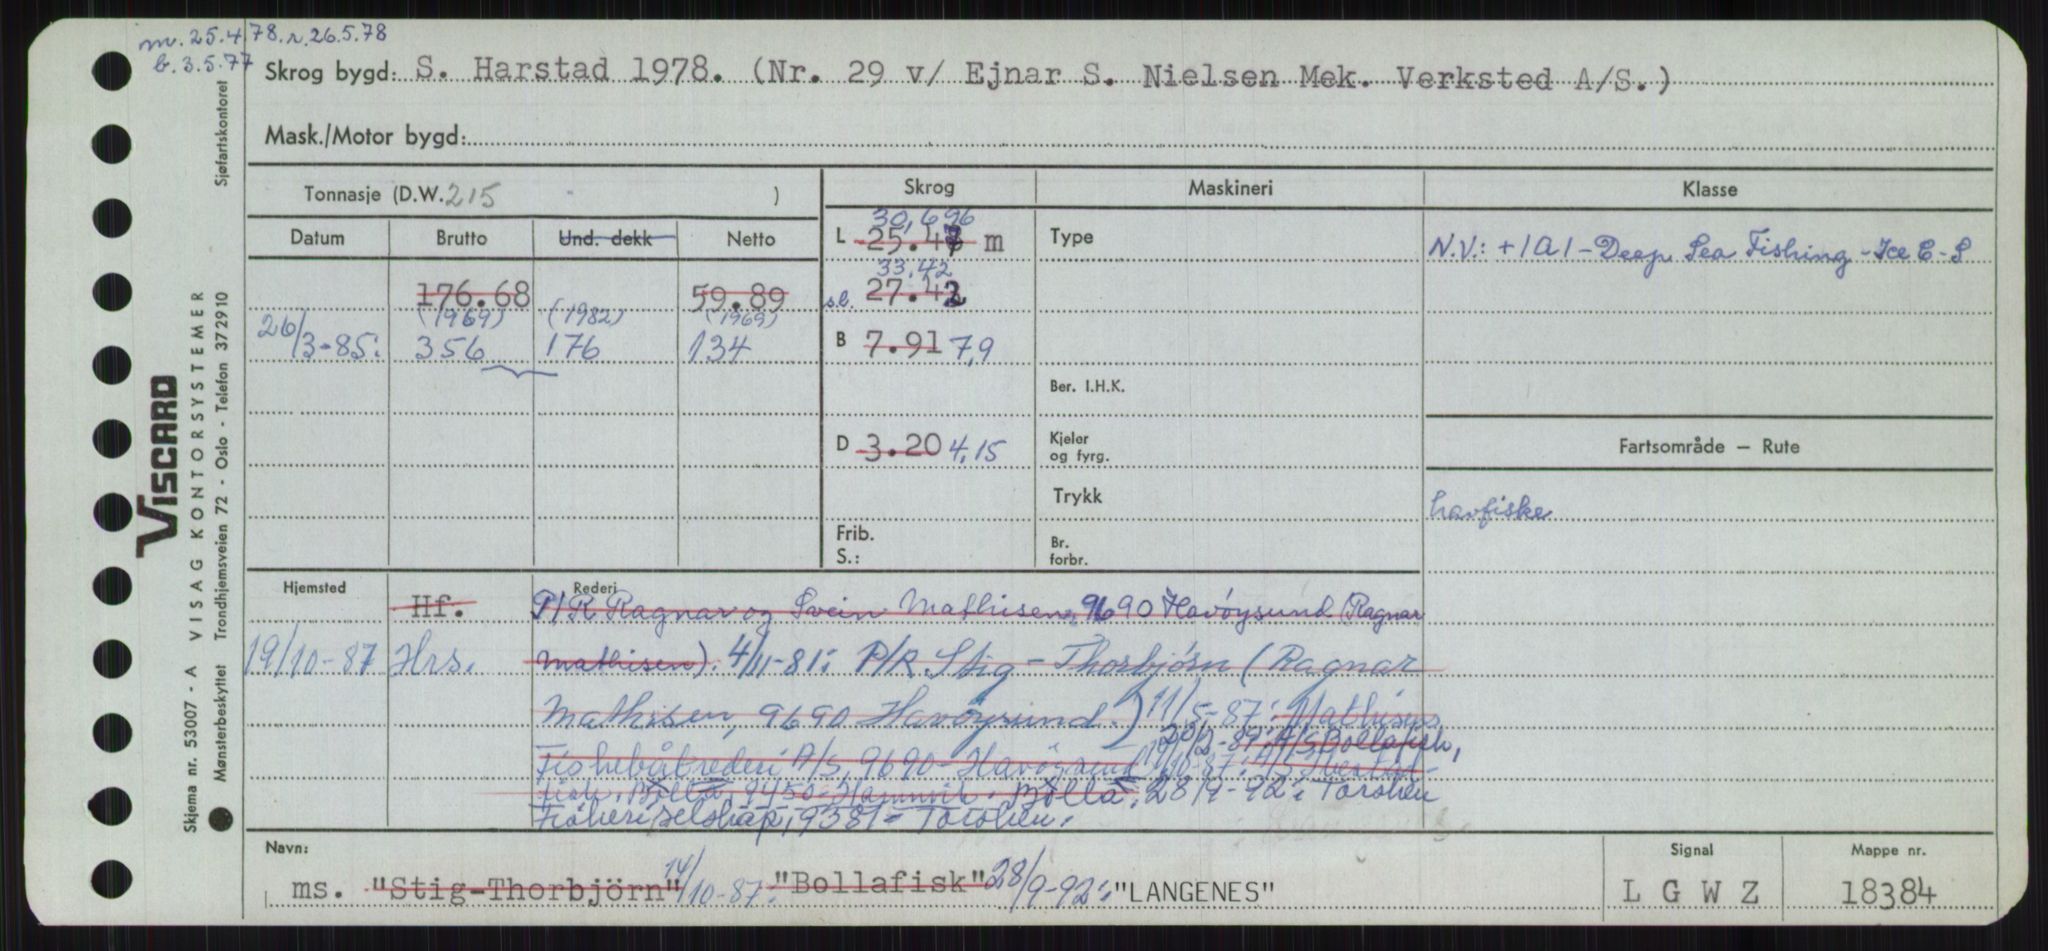 m. 25.4.78. r. 26.5.78
b. 3.5.77
Skrog bygd: S. Harstad 1978. (Nr. 29 v/ Ejnar S. Nielsen Mek. Verksted A/S.)
Mask./Motor bygd:
Tonnasje (D.W. 215 )
Skrog
Maskineri
Klasse
Datum
Brutto
Und. dekk
Netto
L 25.47 m 30,696
Type
N.V.: + 1A1 - Deep Sea Fishing - Ice C - S
176.68
59.89
s.l. 27.42 33.42
(1969) (1982) (1969)
26/3-85: 356 176 134
B 7.91 7,9
Ber. I.H.K.
D 3.20 4,15
Kjeler
og fyrg.
Fartsområde — Rute
Trykk
havfiske
Frib.
S.:
Br.
forbr.
Hjemsted
Rederi
Hf.
P/R Ragnar og Svein Mathisen, 9690 Havöysund (Ragnar
19/10-87 Hrs.
Mathisen). 4/11-81: P/R Stig-Thorbjörn (Ragnar
Mathisen, 9690 Havöysund.) 11/5-87: Mathisens
-87: A/S Bollafisk,
Fiskebåtrederi A/S, 9690 - Havöysund /10-87: A/S
fisk, Bolla, 9450-Hamnvik. Bolla, 28/9-92: Torsken
Fiskeriselskap, 9381 - Torsken.
Navn:
ms. "Stig-Thorbjörn" 14/10-87: "Bollafisk" 28/9-92: "LANGENES"
Signal
L G W Z
Mappe nr.
18384
VISCARD
VISAG KONTORSYSTEMER
Skjema nr. 53007 - A
Mønsterbeskyttet Trondhjemsveien 72 - Oslo - Telefon 372910 Sjøfartskontoret